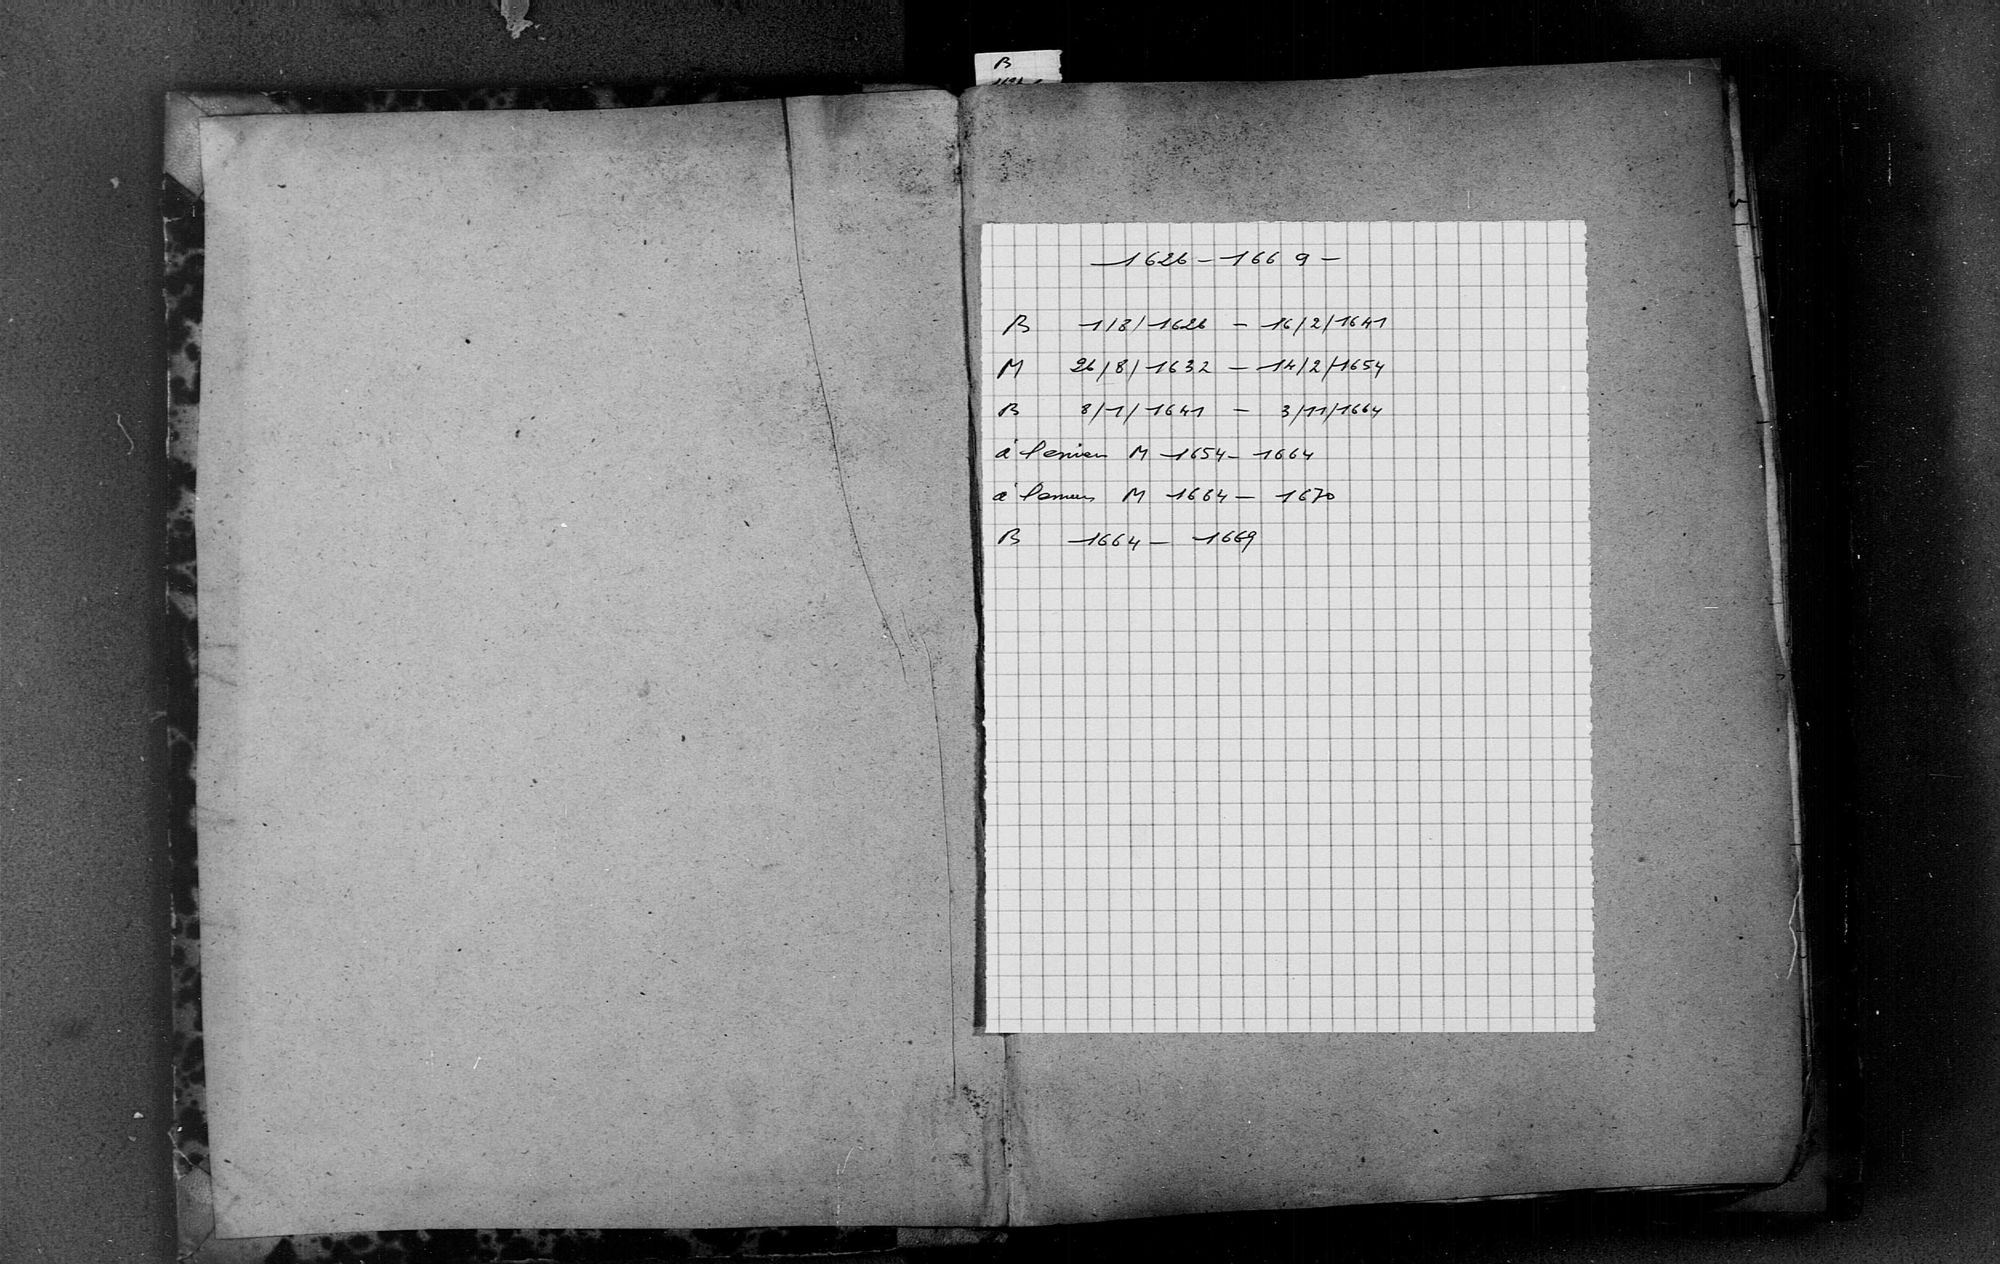 B
1626 - 1669 -
B 1/8/1626 - 16/2/1641
M 26/8/1632 - 14/2/1654
B 8/1/1641 - 3/11/1664
à l'envers M 1654 - 1664
à l'envers M 1664 - 1670
B 1664 - 1669